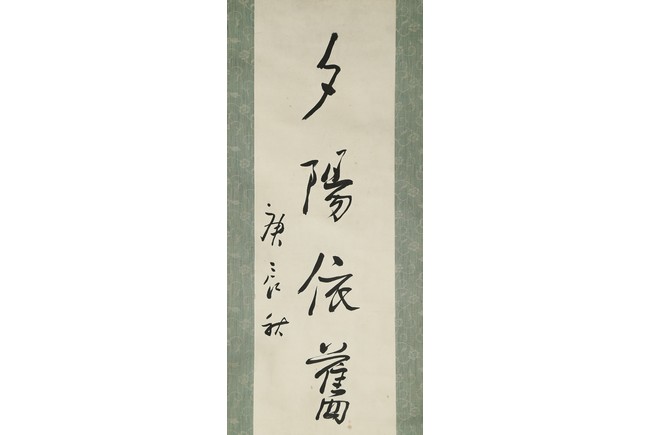 夕陽依舊
庚辰秋